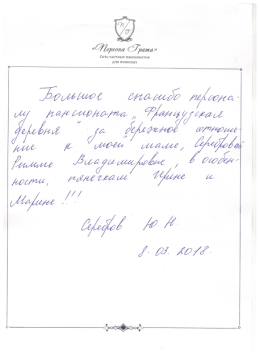 «Персона Грата»
Сеть частных пансионатов
для пожилых
Большое спасибо персона-
лу пансионата „Французская
деревня" за бережное отноше-
ние к моей маме, Серебровой
Римме Владимировне, в особен-
ности, нянечкам Ирине и
Марине!!!
Серебров Ю.Н.
8.03.2018.